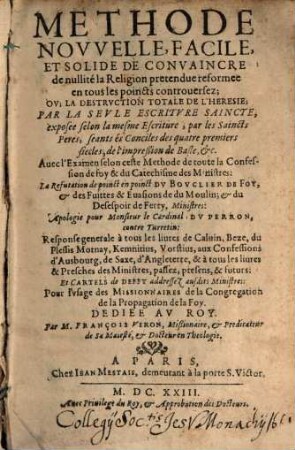 METHODE
NOVVELLE, FACILE,
ET SOLIDE DE CONVAINCRE
de nullité la Religion pretenduë reformee
en tous les poincts controversez;
OV, LA DESTRVCTION TOTALE DE L'HERESIE;
PAR LA SEVLE ESCRITVRE SAINCTE,
exposee selon la mesme Escriture; par les Saincts
Peres, seants és Conciles des quatre premiers
siecles, de l'impression de Basle, &c.
Auec l'Examen selon ceste Methode de toute la Confes-
sion de foy & du Catechisme des Ministres:
La Refutation de poinct en poinct DV BOVCLIER DE FOY,
& des Fuittes & Euasions de du Moulin; & du
Desespoir de Ferry, Ministres:
Apologie pour Monsieur le Cardinal DV PERRON,
contre Turretin:
Response generale à tous les liures de Caluin, Beze, du
Plessis Mornay, Kemnitius, Vorstius, aux Confessions
d'Ausbourg, de Saxe, d'Angleterre, & à tous les liures
& Presches des Ministres, passez, presens, & futurs:
Et CARTELS de DEFFY addressez ausdits Ministres:
Pour l'vsage des MISSIONNAIRES de la Congregation
de la Propagation de la Foy.
DEDIEE AV ROY.
Par M. FRANÇOIS VERON, Missionnaire, & Predicateur
de Sa Maiesté, & Docteur en Theologie.
A PARIS,
Chez IEAN MESTAIS, demeurant à la porte S. Victor.
M. DC. XXIII.
Auec Priuilege du Roy, & Approbation des Docteurs.
Collegij Soctis Jesv Monachij